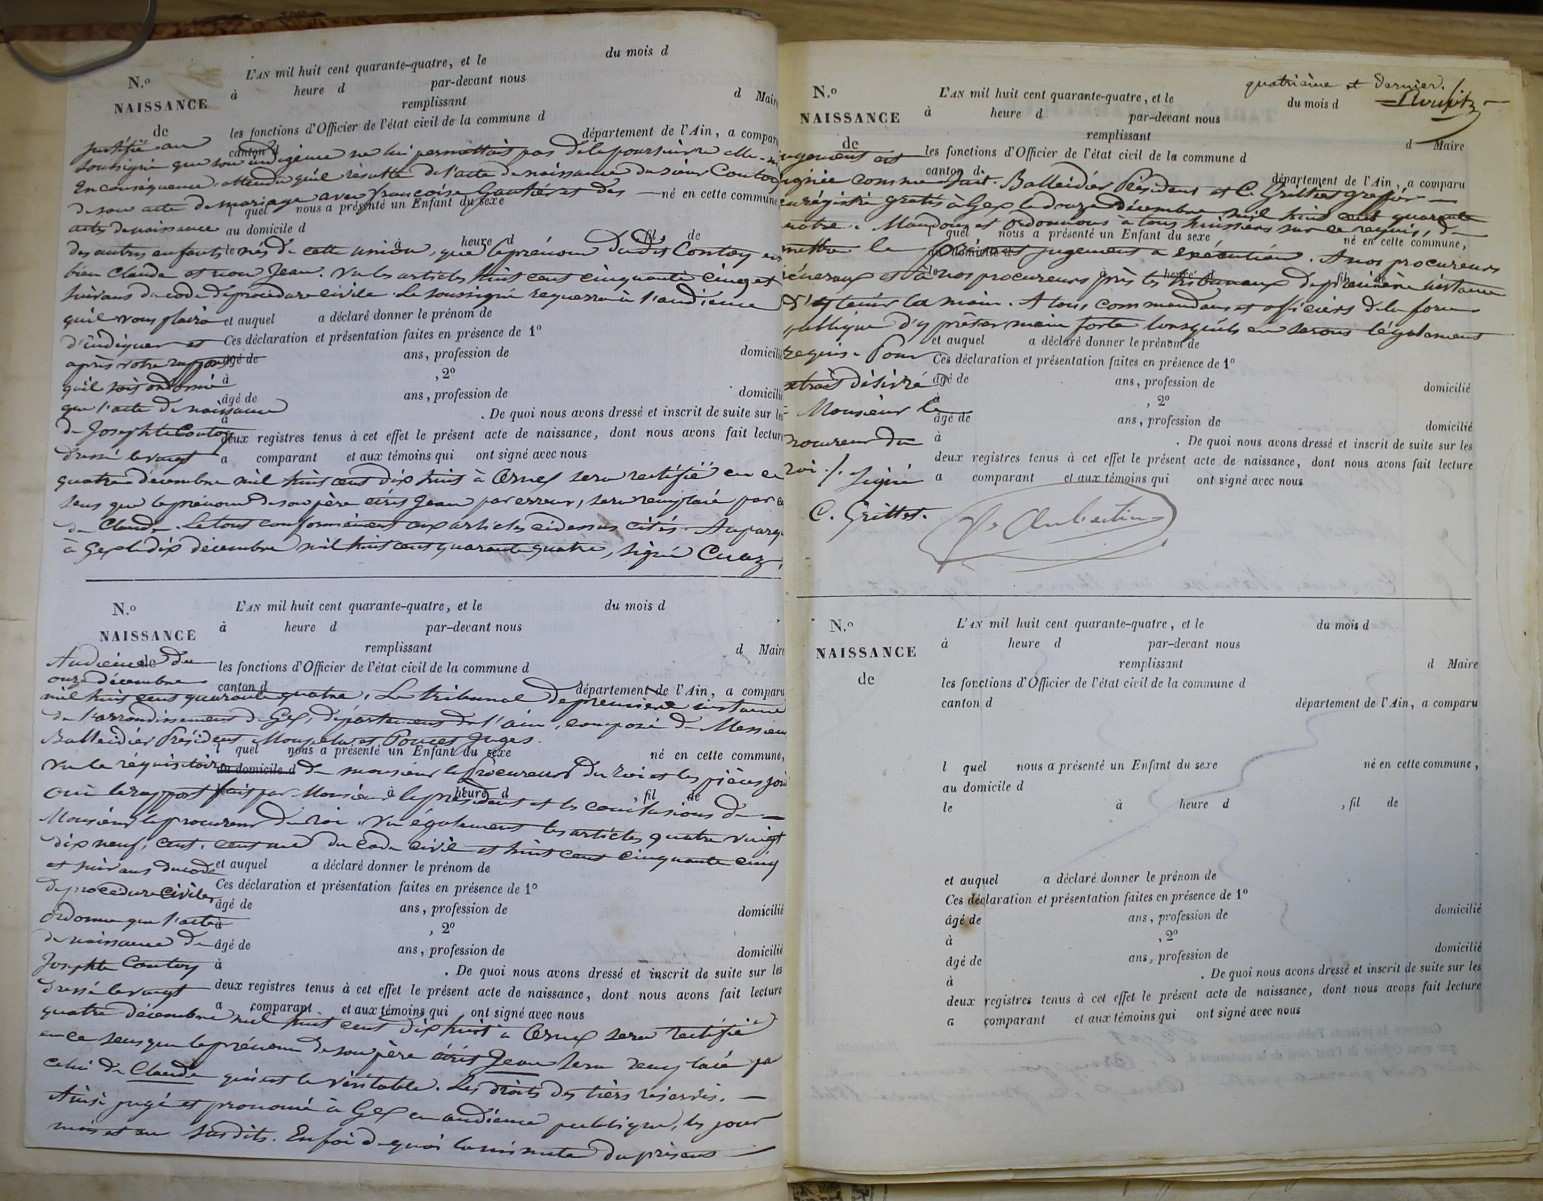 N.º
NAISSANCE
de
L'AN mil huit cent quarante-quatre, et le du mois d
à heure d par-devant nous
remplissant d Maire
les fonctions d'Officier de l'état civil de la commune d
canton d département de l'Ain, a comparu
justifié au
soussigné que son indigence ne lui permettait pas de le poursuivre elle-
En conséquence, attendu qu'il résulte de l'acte de naissance du sieur Contoy
de son acte de mariage avec françoise Gautier et des
l quel nous a présenté un Enfant du sexe né en cette commune
actes de naissance
au domicile d
le à heure d fil de
des autres enfants nés de cette union, que le prénom dudit Contoy est
bien Claude et non Jean. Vu les articles huit cent cinquante cinq et
suivans du code de procédure civile. Le soussigné requiert à l'audience
qu'il vous plaise
et auquel a déclaré donner le prénom de
d'indiquer et
Ces déclaration et présentation faites en présence de 1º
après votre rapport
âgé de ans, profession de domicilié
qu'il soit ordonné
à , 2º
que l'acte de naissance
âgé de ans, profession de domicilié
de Josephte Contoy
à . De quoi nous avons dressé et inscrit de suite sur les
deux registres tenus à cet effet le présent acte de naissance, dont nous avons fait lecture
dressé le vingt
a comparant et aux témoins qui ont signé avec nous
quatre décembre mil huit cent dix huit à Ornex sera rectifié en ce
sens que le prénom de son père écrit Jean par erreur, sera remplacé par
de Claude. Le tout conformément aux articles cidessus cités. Au parquet
à Gex le dix décembre mil huit cent quarante quatre, signé Cuaz,
N.º
NAISSANCE
de
L'AN mil huit cent quarante-quatre, et le du mois d
à heure d par-devant nous
remplissant d Maire
les fonctions d'Officier de l'état civil de la commune d
canton d département de l'Ain, a comparu
Audience du
onze décembre
mil huit cent quarante quatre, Le tribunal de première instance
de l'arrondissement de Gex, département de l'ain, composé de Messieurs
Balleidier Président, et Juges.
l quel nous a présenté un Enfant du sexe né en cette commune,
au domicile d
Vu le réquisitoire de monsieur le Procureur du roi et les pièces
le à heure d fil de
Ouï le rapport fait par Monsieur le président et les conclusions de
Monsieur le procureur du roi. Vu également les articles quatre vingt
dix neuf, cent, cent un du code civil et huit cent cinquante cinq
et suivans du code
et auquel a déclaré donner le prénom de
de procédure civile,
Ces déclaration et présentation faites en présence de 1º
âgé de ans, profession de domicilié
ordonne que l'acte
à , 2º
de naissance de
âgé de ans, profession de domicilié
Josephte Contoy
à . De quoi nous avons dressé et inscrit de suite sur les
dressé le vingt
deux registres tenus à cet effet le présent acte de naissance, dont nous avons fait lecture
a comparant et aux témoins qui ont signé avec nous
quatre décembre mil huit cent dix huit à Ornex sera rectifié
en ce sens que le prénom de son père écrit Jean sera remplacé par
celui de Claude qui est le véritable. Les droits des tiers réservés.
Ainsi jugé et prononcé à Gex en audience publique, les jour
mois et an susdits. En foi de quoi la minute du présent
quatrième et dernier.
N.º
NAISSANCE
de
L'AN mil huit cent quarante-quatre, et le du mois d
à heure d par-devant nous
remplissant d Maire
les fonctions d'Officier de l'état civil de la commune d
canton d département de l'Ain, a comparu
jugement est
signée comme fait. Balleidier Président et C. Grillet greffier
enregistré gratis à Gex le douze décembre mil huit cent quarante
quatre. Mandons et ordonnons à tous huissiers sur ce requis, de
l quel nous a présenté un Enfant du sexe né en cette commune,
au domicile d
mettre le présent jugement à exécution. A nos procureurs
le heure d fil de
généraux et à nos procureurs près les tribunaux de première instance
d'y tenir la main. A tous commandans et officiers de la force
publique d'y prêter main forte lorsqu'ils en seront légalement
requis. Pour
et auquel a déclaré donner le prénom de
Ces déclaration et présentation faites en présence de 1º
extrait délivré à
âgé de ans, profession de domicilié
à , 2º
Monsieur le
âgé de ans, profession de domicilié
procureur du
à . De quoi nous avons dressé et inscrit de suite sur les
deux registres tenus à cet effet le présent acte de naissance, dont nous avons fait lecture
roi. Signé
a comparant et aux témoins qui ont signé avec nous
C. Grillet.
N.º
NAISSANCE
de
L'AN mil huit cent quarante-quatre, et le du mois d
à heure d par-devant nous
remplissant d Maire
les fonctions d'Officier de l'état civil de la commune d
canton d département de l'Ain, a comparu
l quel nous a présenté un Enfant du sexe né en cette commune,
au domicile d
le à heure d , fil de
et auquel a déclaré donner le prénom de
Ces déclaration et présentation faites en présence de 1º
âgé de ans, profession de domicilié
à , 2º
âgé de ans, profession de domicilié
à . De quoi nous avons dressé et inscrit de suite sur les
deux registres tenus à cet effet le présent acte de naissance, dont nous avons fait lecture
a comparant et aux témoins qui ont signé avec nous